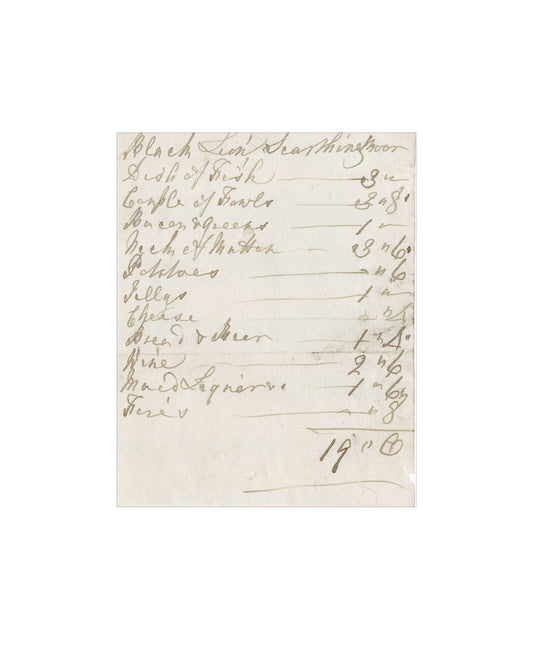 Black Lion Scarthingmoor
Dish of Fish 3 "
Couple of Fowls 3 " 8
Bacon & greens 1 "
Neck of Mutton 3 " 6
Potatoes " 6
Jellys 1 "
Cheese " 4
Bread & Beer 1 " 4
Wine 2 " 6
1 " 6
Fires " 8
19 " 0